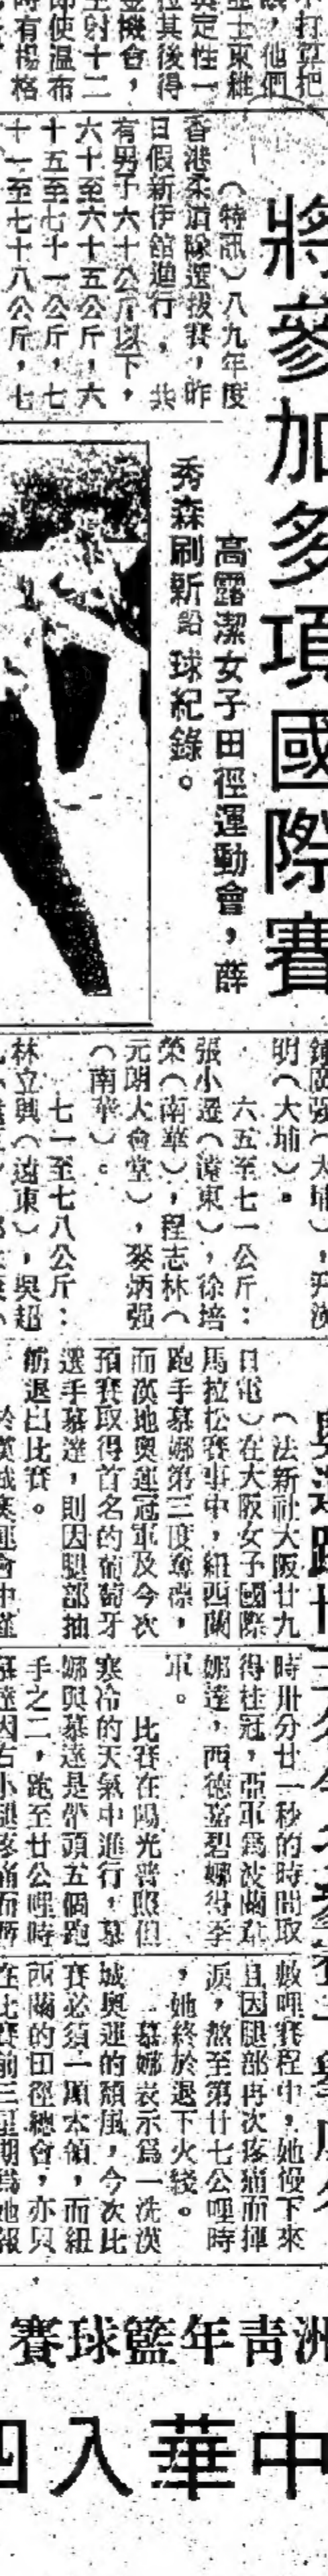 打算把
，他們
士東維
異定性一
位其後得
機會，
射十二
即使溫布
時有楊格
將參加多項國際賽
（特訊）八九年度
香港柔道隊選拔賽，昨
日假新伊舘進行，共
有男子六十公斤以下，
六十至六十五公斤，六
十五至七十一公斤，七
十一至七十八公斤，七
高露潔女子田徑運動會，薛
秀森刷新鉛球紀錄。
明（大埔）。
六五至七一公斤：
張小遜（遠東），徐培
榮（南華），程志林（
元朗大會堂），麥炳强
（南華）。
七一至七八公斤：
林立興（遠東），吳超
（法新社大阪廿九
日電）在大阪女子國際
馬拉松賽事中，紐西蘭
跑手慕娜第三度奪標，
而漢地奧運冠軍及今次
預賽取得首名的葡萄牙
選手慕達，則因腿部抽
筋退出比賽。
時卅分廿一秒的時間取
得桂冠，亞軍爲波蘭
娜達，西德嘉碧娜得季
軍。
比賽在陽光普照但
寒冷的天氣中進行，慕
娜與慕達是帶頭五個跑
手之二，跑至廿公哩時
慕達因右小腿疼痛而暫
數哩賽程中，她慢下來
且因腿部再次疼痛而揮
淚，熬至第廿七公哩時
，她終於退下火綫。
慕娜表示爲一洗漢
城奧運的頹風，今次比
賽必須一顯本領，而紐
西蘭的田徑總會，亦只
在比賽前三星期爲她報
洲青年籃球賽
中華入四